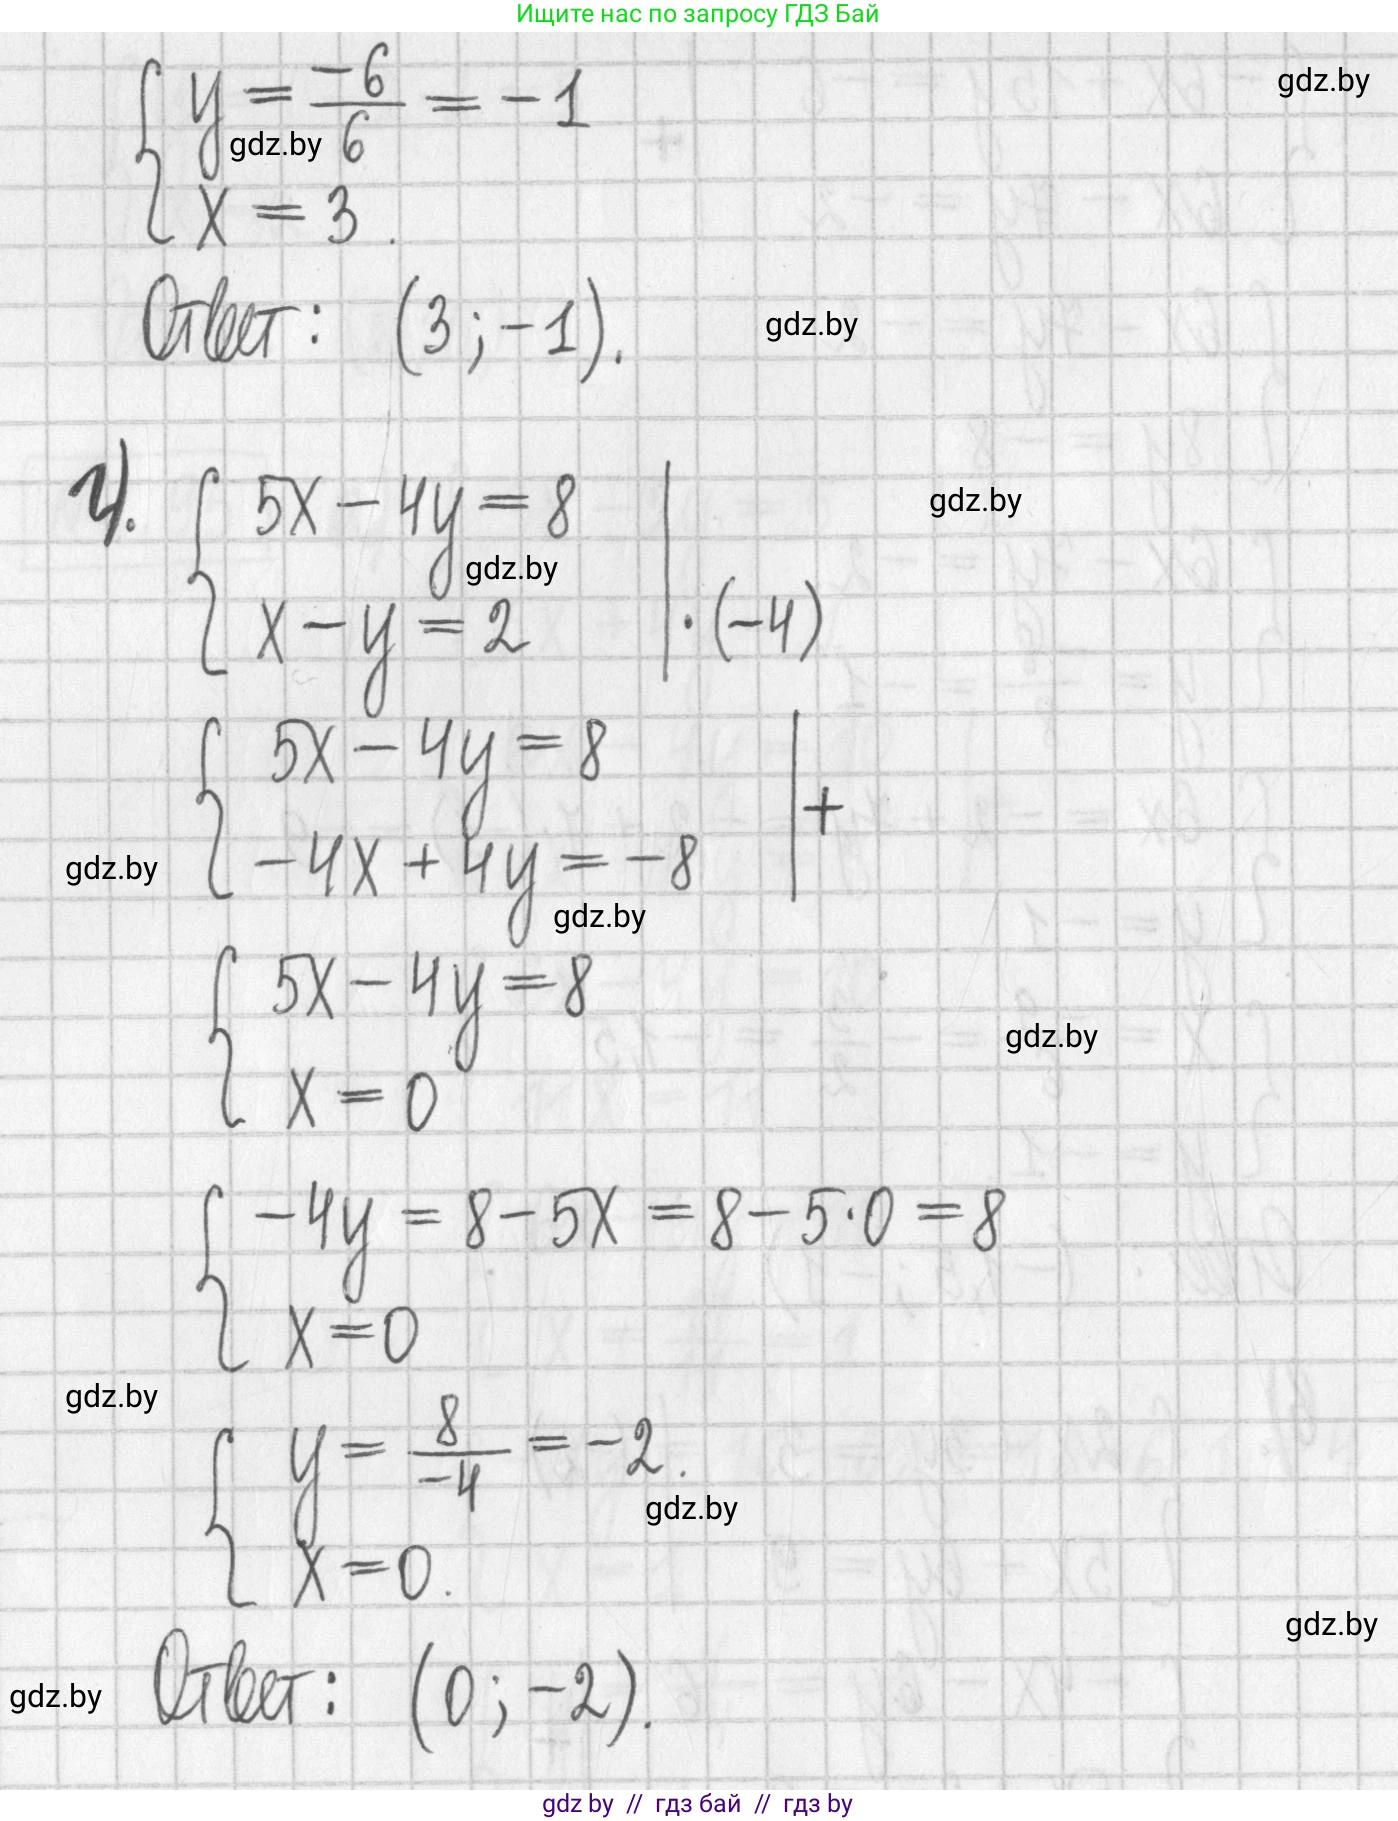 Ищите нас по запросу ГДЗ Бай
gdz.by
{ y = -6/6 = -1
gdz.by
x = 3.
Ответ: (3; -1).
gdz.by
г). { 5x - 4y = 8 |
gdz.by
gdz.by
x - y = 2 | · (-4)
{ 5x - 4y = 8 | +
-4x + 4y = -8
gdz.by
gdz.by
{ 5x - 4y = 8
gdz.by
x = 0
{ -4y = 8 - 5x = 8 - 5·0 = 8
x = 0
gdz.by
{ y = 8/-4 = -2.
gdz.by
x = 0.
gdz.by
Ответ: (0; -2).
gdz.by
gdz by // гдз бай // гдз by